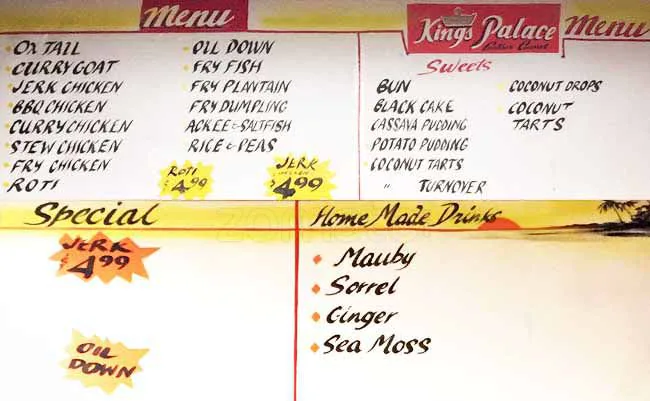 Menu
OX TAIL
CURRY GOAT
JERK CHICKEN
BBQ CHICKEN
CURRY CHICKEN
STEW CHICKEN
FRY CHICKEN
ROTI
OIL DOWN
FRY FISH
FRY PLANTAIN
FRY DUMPLING
ACKEE & SALTFISH
RICE & PEAS
ROTI
$4.99
JERK
CHICKEN
$4.99
Kings Palace
Menu
Sweets
BUN
BLACK CAKE
CASSAVA PUDDING
POTATO PUDDING
COCONUT TARTS
" TURNOVER
COCONUT DROPS
COCONUT
TARTS
Special
JERK
$4.99
OIL
DOWN
Home Made Drinks
Mauby
Sorrel
Ginger
Sea Moss